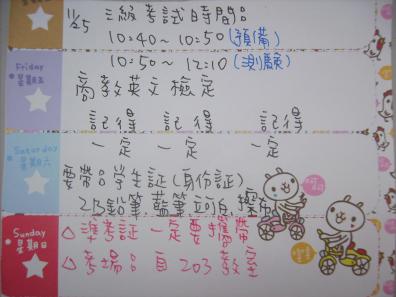 11/25 三級考試時間:
10:40~10:50(預備)
10:50~12:10(測驗)
Friday
星期五
商教英文檢定
記得 記得 記得
一定 一定 一定
Saturday
星期六
要帶:學生証(身份証)
2B鉛筆.藍筆.立可白.擦布
Sunday
星期日
△準考証一定要攜帶
△考場:自203教室